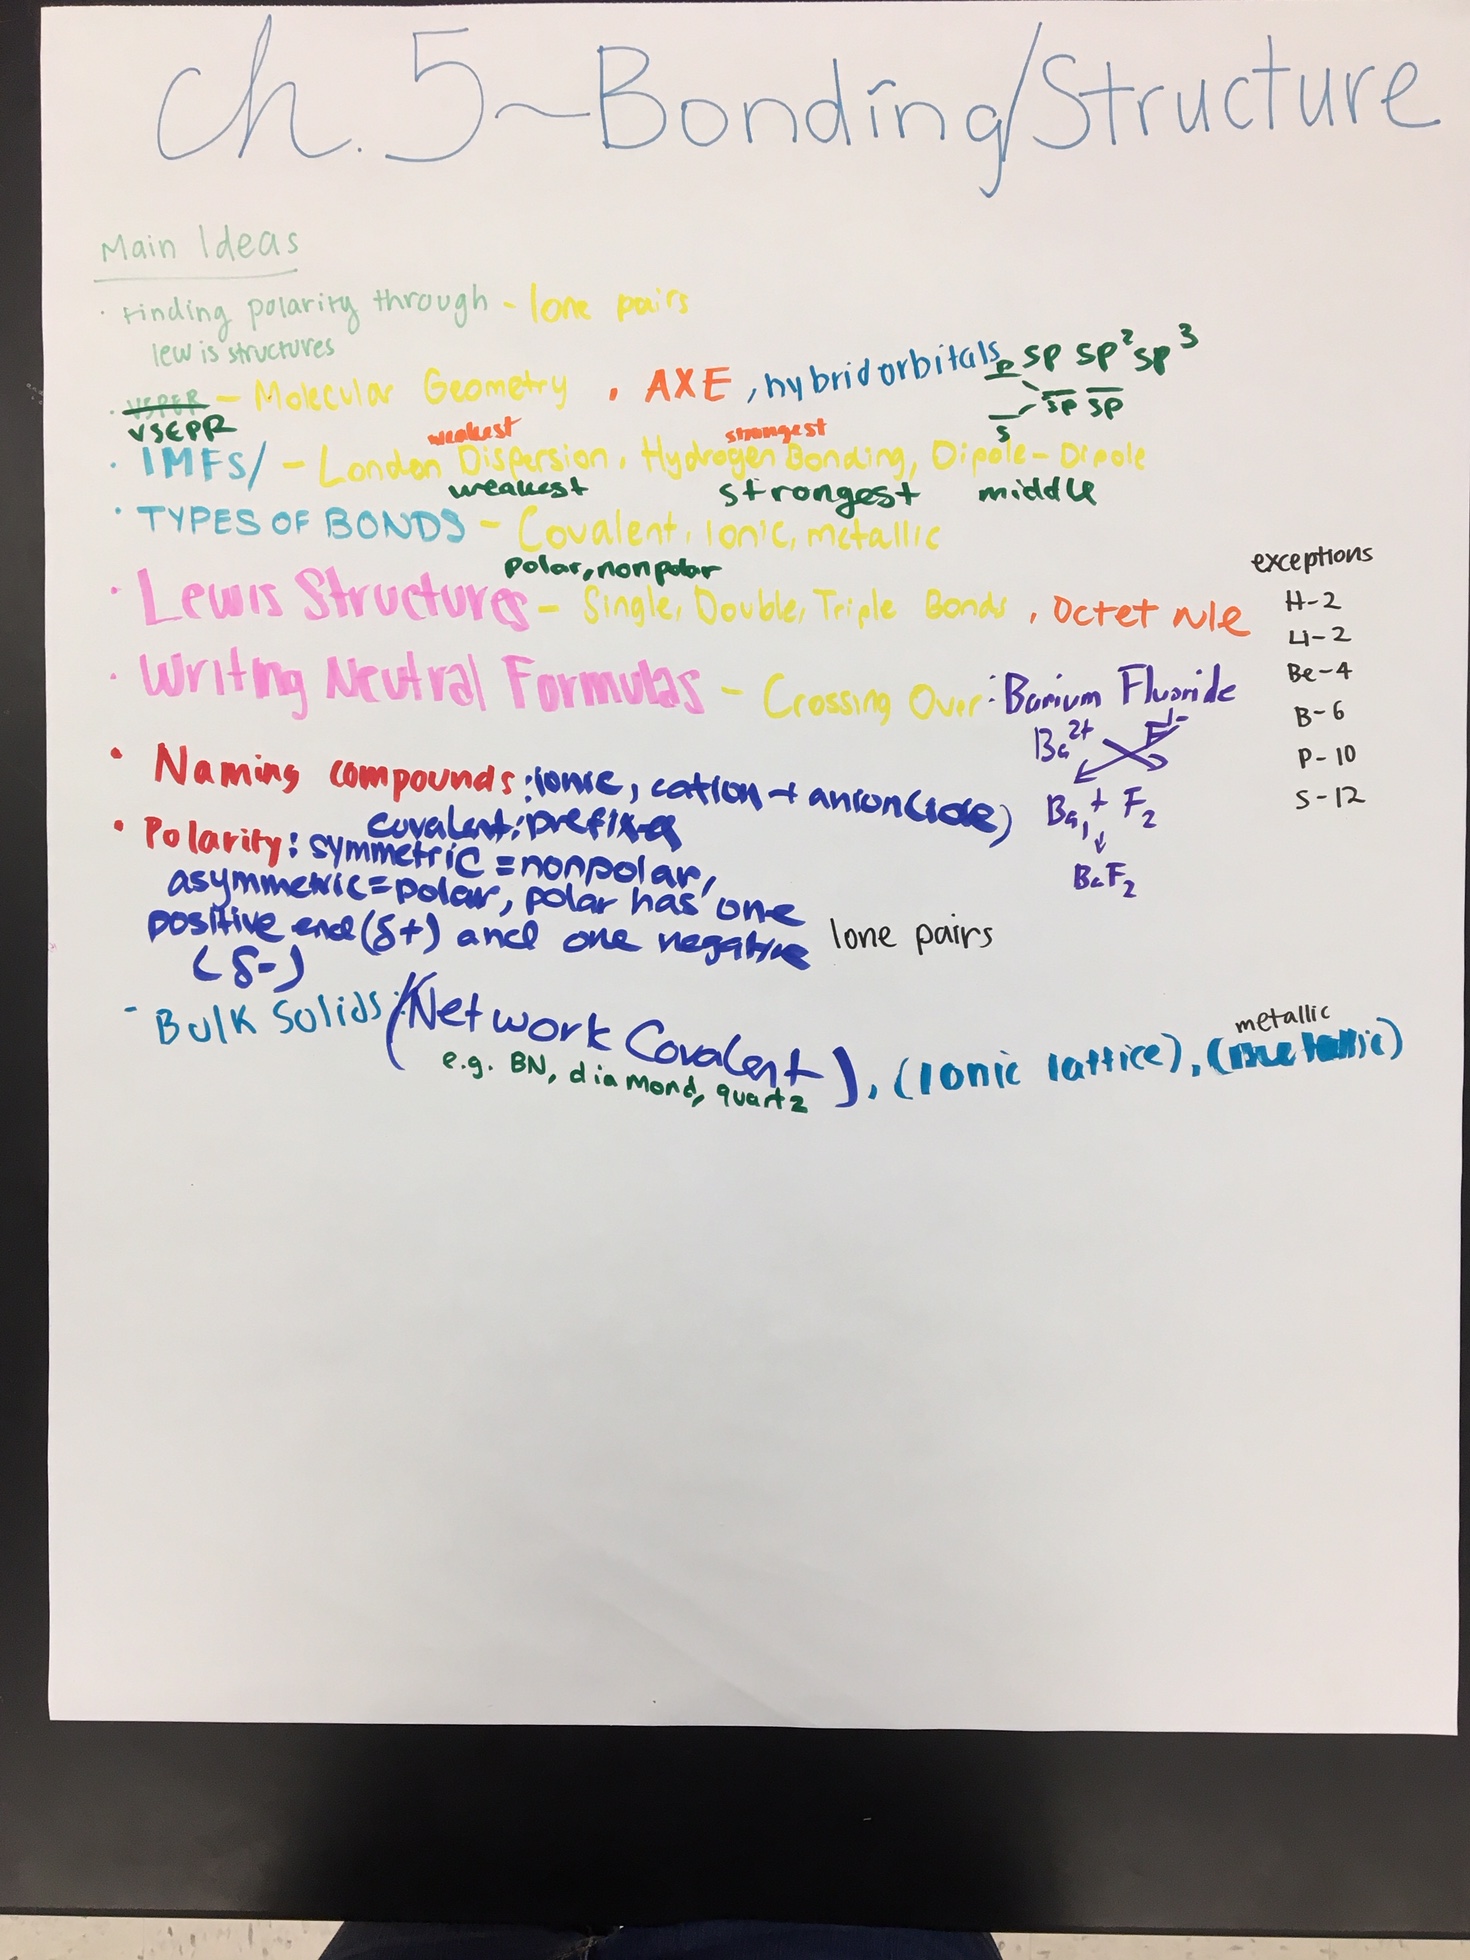 Ch. 5~Bonding/Structure
Main Ideas
· Finding polarity through - lone pairs
lewis structures
· VSPER - Molecular Geometry , AXE , hybridorbitals p sp sp² sp³
VSEPR
s sp sp
weakest strongest
· IMFS/ - London Dispersion, Hydrogen Bonding, Dipole-Dipole
weakest strongest middle
· TYPES OF BONDS - Covalent, Ionic, metallic
polar, nonpolar
· Lewis Structures - Single, Double, Triple Bonds , Octet rule
exceptions
H-2
Li-2
Be-4
B-6
P-10
S-12
· Writing Neutral Formulas - Crossing Over: Barium Fluoride
Ba²⁺ F¹⁻
Ba₁ + F₂
BaF₂
· Naming compounds: ionic, cation + anion(ide)
covalent: prefix
· Polarity: symmetric = nonpolar,
asymmetric = polar, polar has one
positive end (δ+) and one negative lone pairs
(δ-)
- Bulk Solids: (Network Covalent), (Ionic lattice), (metallic)
metallic
e.g. BN, diamond, quartz